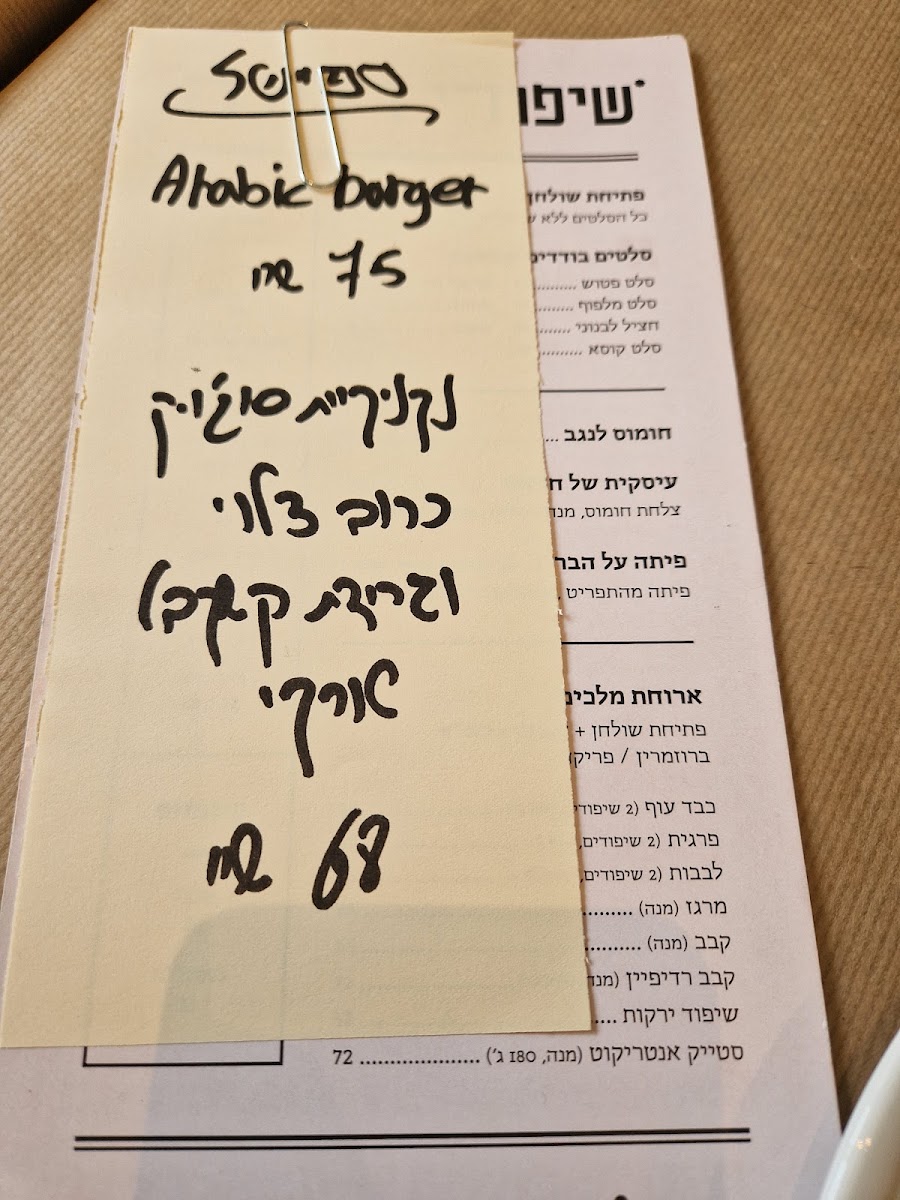 ספיישל
Arabic burger
75 שח
נקניקיית סוג'וק
כרוב צלוי
וגרידת קשקבל
טורקי
68 שח
שיפו
פתיחת שולחן
כל הסלטים ללא
סלטים בודדים
סלט פטוש ........
סלט מלפוף ........
חציל לבנוני .......
סלט קוסא ..........
חומוס לנגב ...
עיסקית של
צלחת חומוס, מנה
פיתה על
פיתה מהתפריט
ארוחת מלכים
פתיחת שולחן +
ברוזמרין / פריקה
כבד עוף (2 שיפודים
פרגית (2 שיפודים,
לבבות (2 שיפודים,
מרגז (מנה) .........
קבב (מנה) ..........
קבב רדיפיין (מנה
שיפוד ירקות ....
סטייק אנטריקוט (מנה, 180 ג') .................... 72